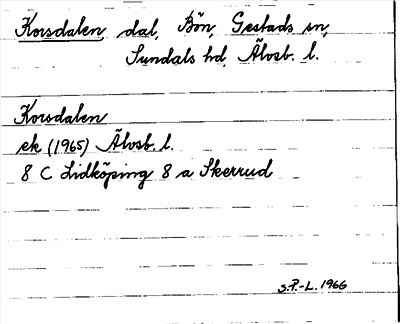 Korsdalen dal, Bön, Gestads sn,
Sundals hd, Älvsb. l.
Korsdalen
ek (1965) Älvsb. l.
8 C Lidköping 8 a Skerrud
S.P.-L. 1966